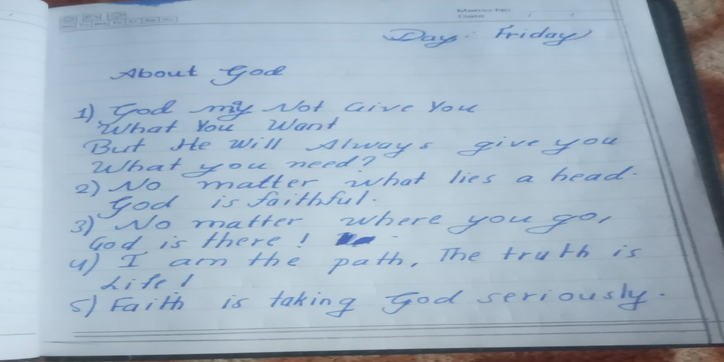 Day: Friday
About God
1) God my Not Give You
What You Want
But He Will Always give you
What you need?
2) No matter what lies a head.
God is faithful.
3) No matter where you go,
God is there!
4) I am the path, The truth is
Life!
5) Faith is taking God seriously.